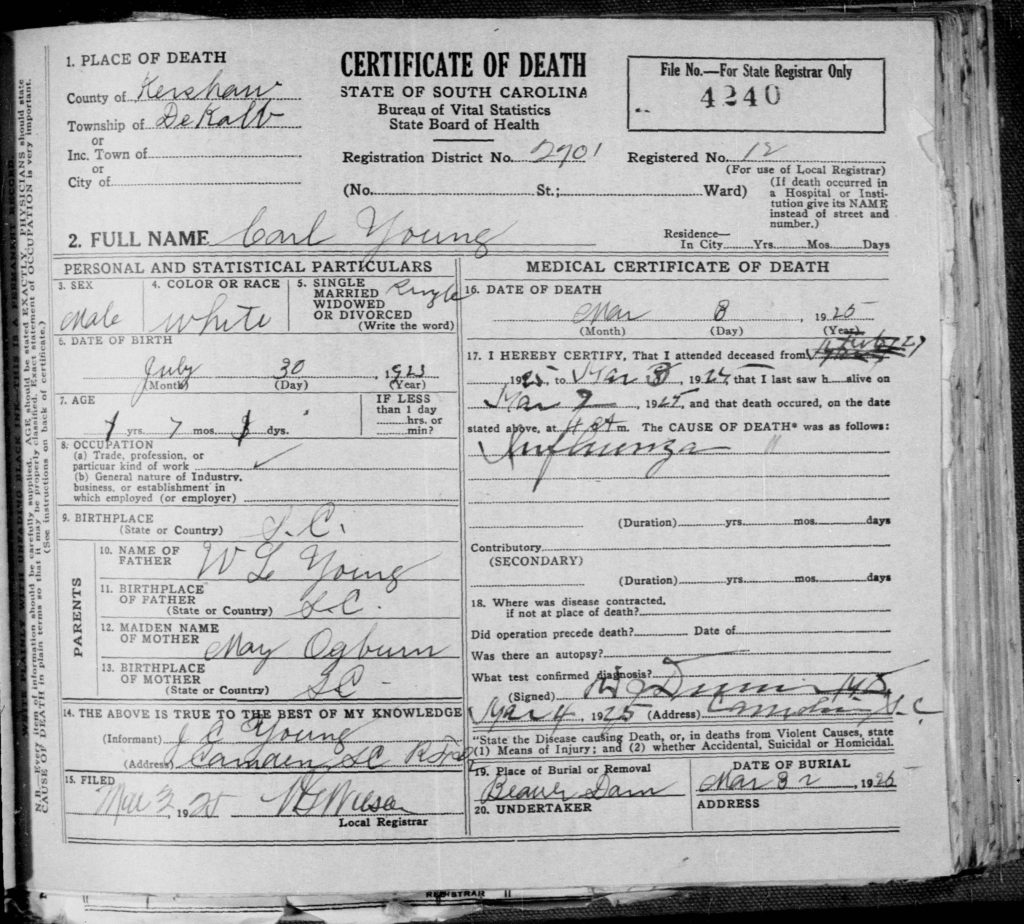 1. PLACE OF DEATH
County of Kershaw
Township of DeKalb
or
Inc. Town of
or
City of
CERTIFICATE OF DEATH
STATE OF SOUTH CAROLINA
Bureau of Vital Statistics
State Board of Health
File No.—For State Registrar Only
4240
Registration District No. 2701
Registered No. 12
(For use of Local Registrar)
(No. St.; Ward)
(If death occurred in
a Hospital or Insti-
tution give its NAME
instead of street and
number.)
2. FULL NAME Carl Young
Residence—
In City Yrs. Mos. Days
PERSONAL AND STATISTICAL PARTICULARS
3. SEX
Male
4. COLOR OR RACE
White
5. SINGLE
MARRIED
WIDOWED
OR DIVORCED
(Write the word)
Single
6. DATE OF BIRTH
July 30, 1923
(Month) (Day) (Year)
7. AGE
1 yrs. 7 mos. dys.
IF LESS
than 1 day
hrs. or
min?
8. OCCUPATION
(a) Trade, profession, or
particuar kind of work ✓
(b) General nature of Industry,
business, or establishment in
which employed (or employer)
9. BIRTHPLACE
(State or Country) S.C.
PARENTS
10. NAME OF
FATHER W L Young
11. BIRTHPLACE
OF FATHER
(State or Country) S.C.
12. MAIDEN NAME
OF MOTHER May Ogburn
13. BIRTHPLACE
OF MOTHER
(State or Country) S.C.
14. THE ABOVE IS TRUE TO THE BEST OF MY KNOWLEDGE
(Informant) J C Young
(Address) Camden SC
15. FILED
Mar 1925
Local Registrar
MEDICAL CERTIFICATE OF DEATH
16. DATE OF DEATH
Mar 3, 1925
(Month) (Day) (Year)
17. I HEREBY CERTIFY, That I attended deceased from Feby 27
1925, to Mar 3, 1925 that I last saw h alive on
Mar 2, 1925, and that death occured, on the date
stated above, at 4 A m. The CAUSE OF DEATH* was as follows:
Influenza
(Duration) yrs. mos. days
Contributory
(SECONDARY)
(Duration) yrs. mos. days
18. Where was disease contracted,
if not at place of death?
Did operation precede death? Date of
Was there an autopsy?
What test confirmed diagnosis?
(Signed)
Mar 4, 1925 (Address) Camden, S.C.
*State the Disease causing Death, or, in deaths from Violent Causes, state
(1) Means of Injury; and (2) whether Accidental, Suicidal or Homicidal.
19. Place of Burial or Removal
Beaver Dam
DATE OF BURIAL
Mar 1925
20. UNDERTAKER
ADDRESS
WRITE PLAINLY WITH UNFADING BLACK INK—THIS IS A PERMANENT RECORD.
N.B.—Every item of information should be carefully supplied. AGE should be stated EXACTLY. PHYSICIANS should state
CAUSE OF DEATH in plain terms so that it may be properly classified. Exact statement of OCCUPATION is very important.
(See instructions on back of certificate.)
REGISTRAR